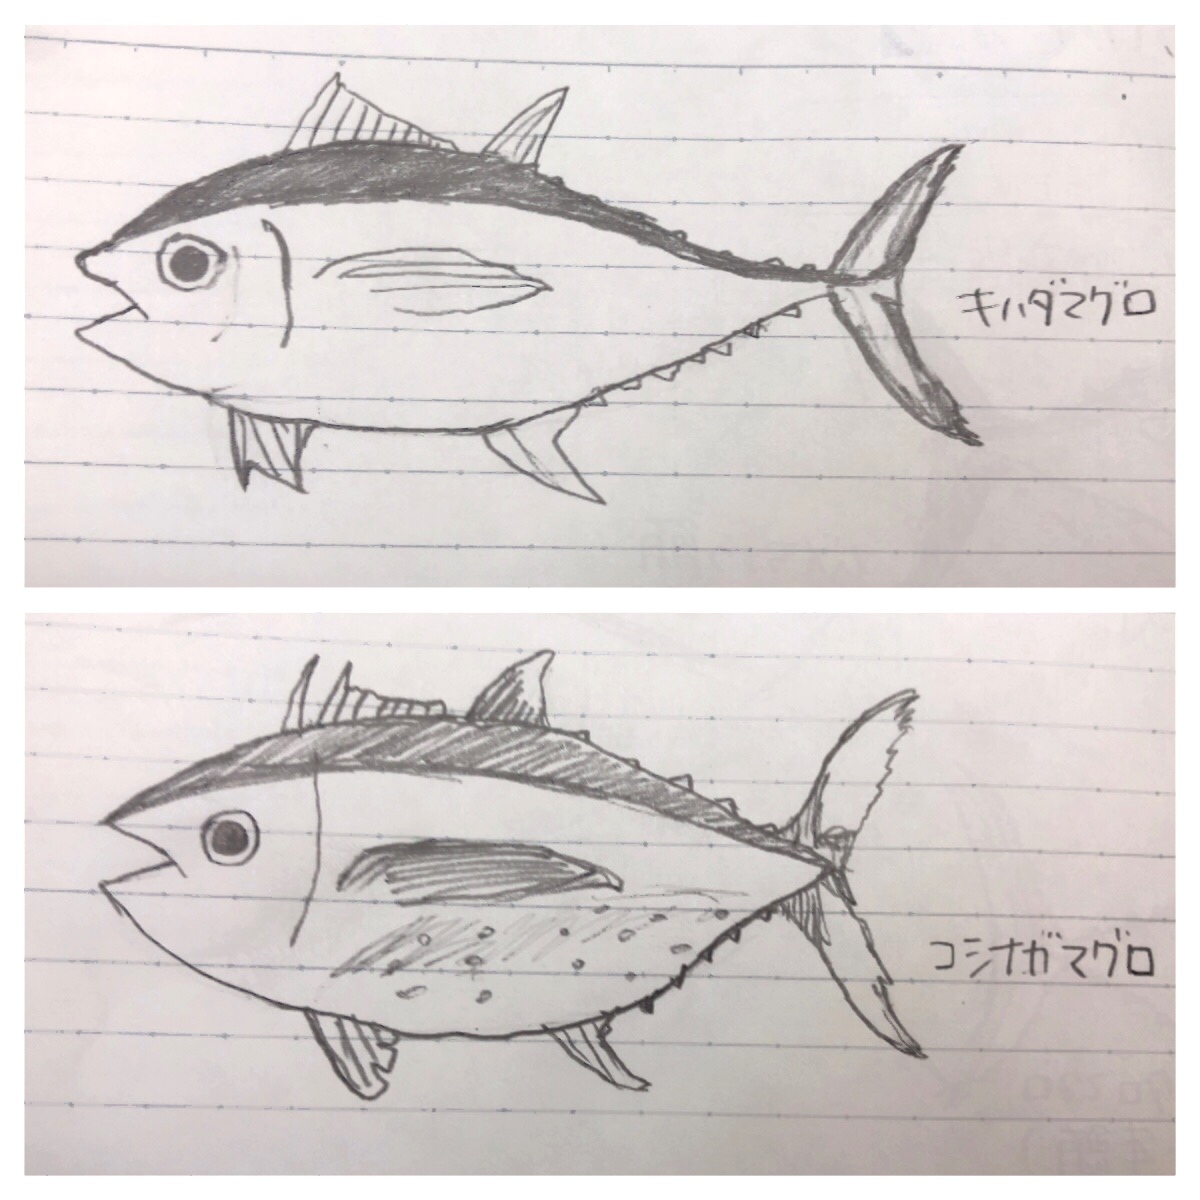 キハダマグロ
コシナガマグロ